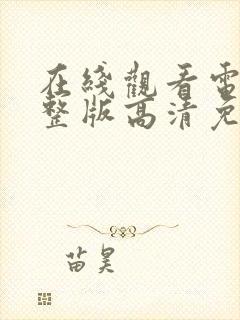 在綫觀看電
整版高清免
苗昊